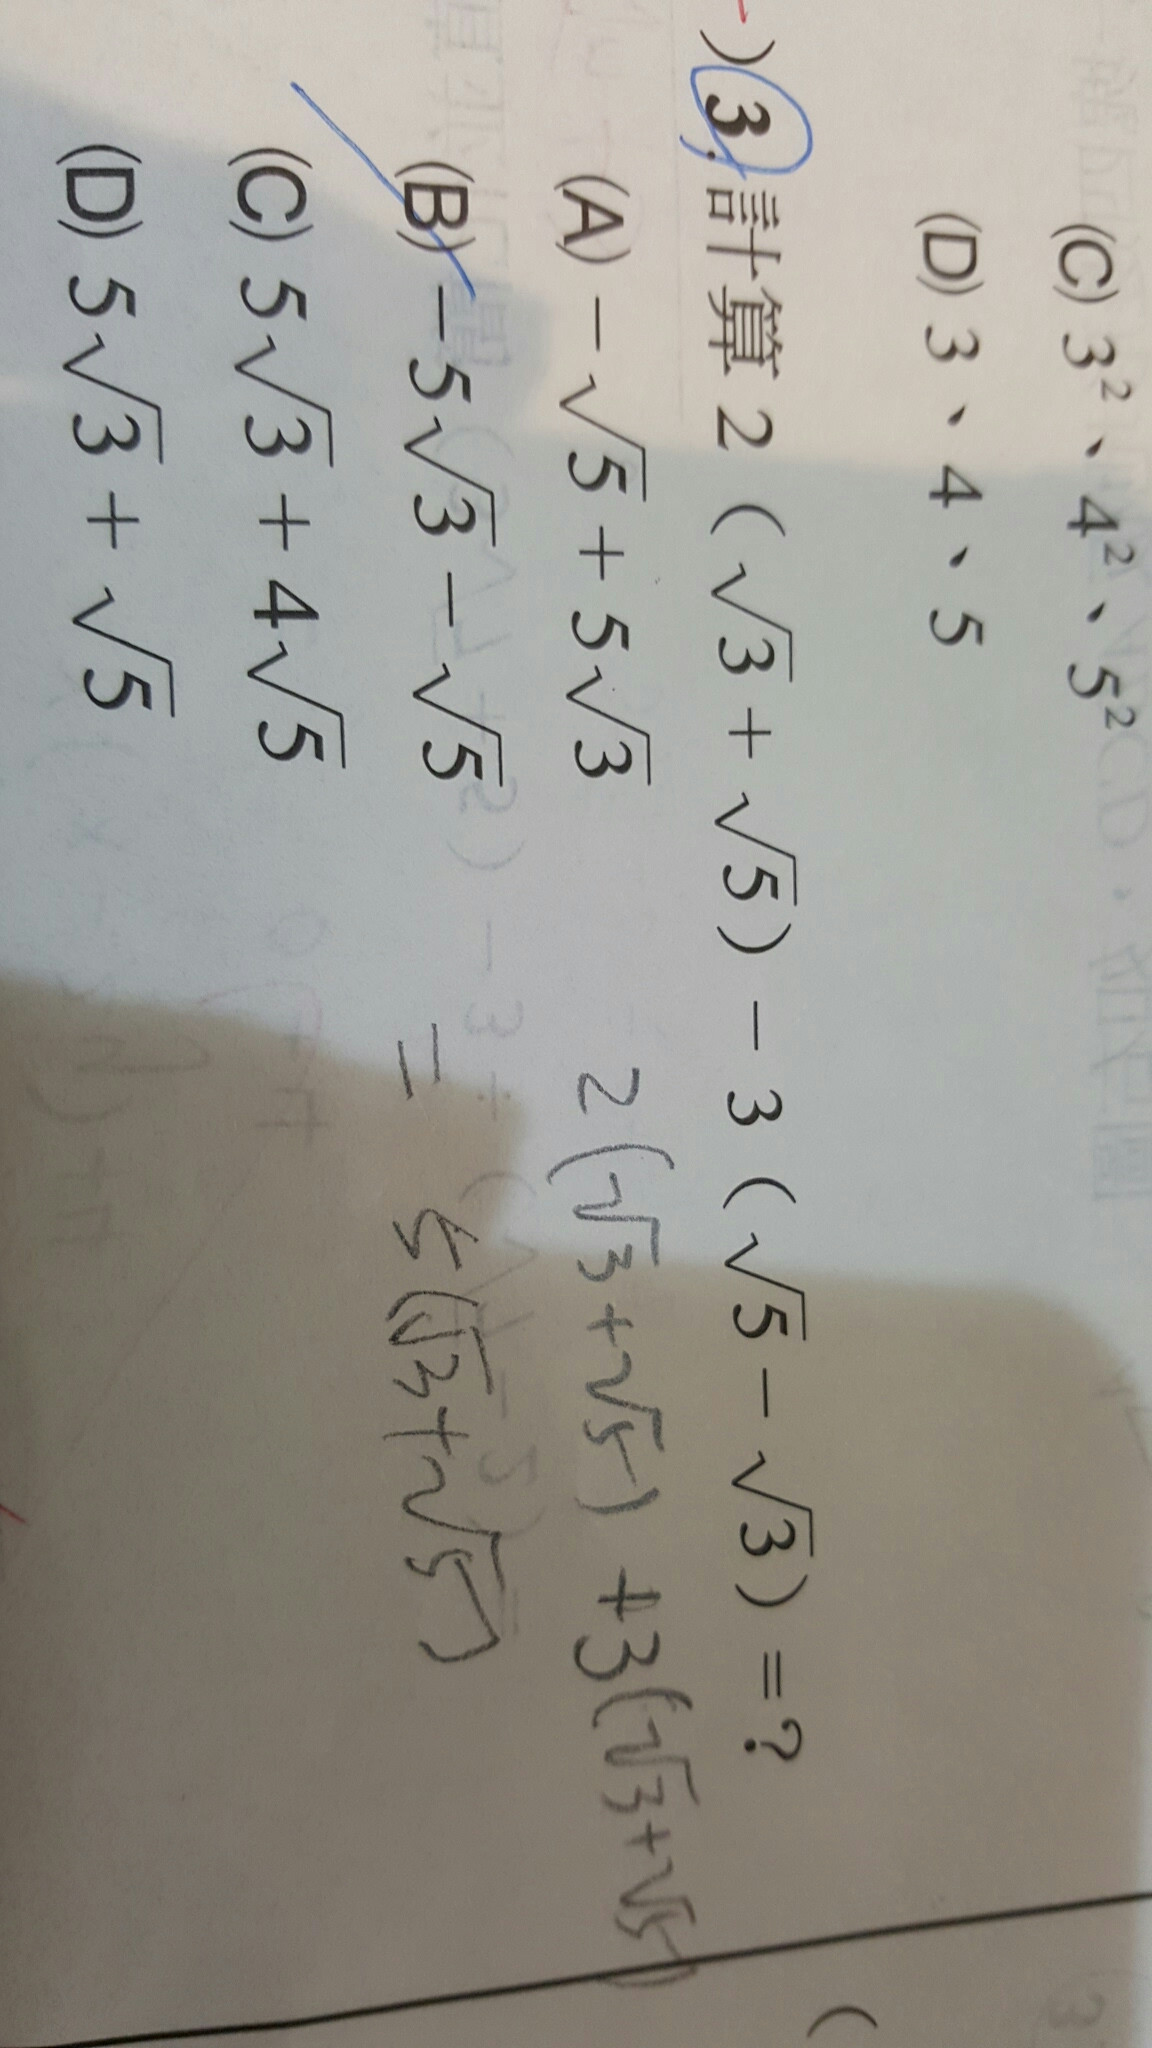 (C) 3²、4²、5²
(D) 3、4、5
) 3. 計算 2 ( √3 + √5 ) − 3 ( √5 − √3 ) = ?
(A) −√5 + 5√3
(B) −5√3 − √5
(C) 5√3 + 4√5
(D) 5√3 + √5
2(√3+√5) +3(√3+√5)
= 5(√3+√5)
(